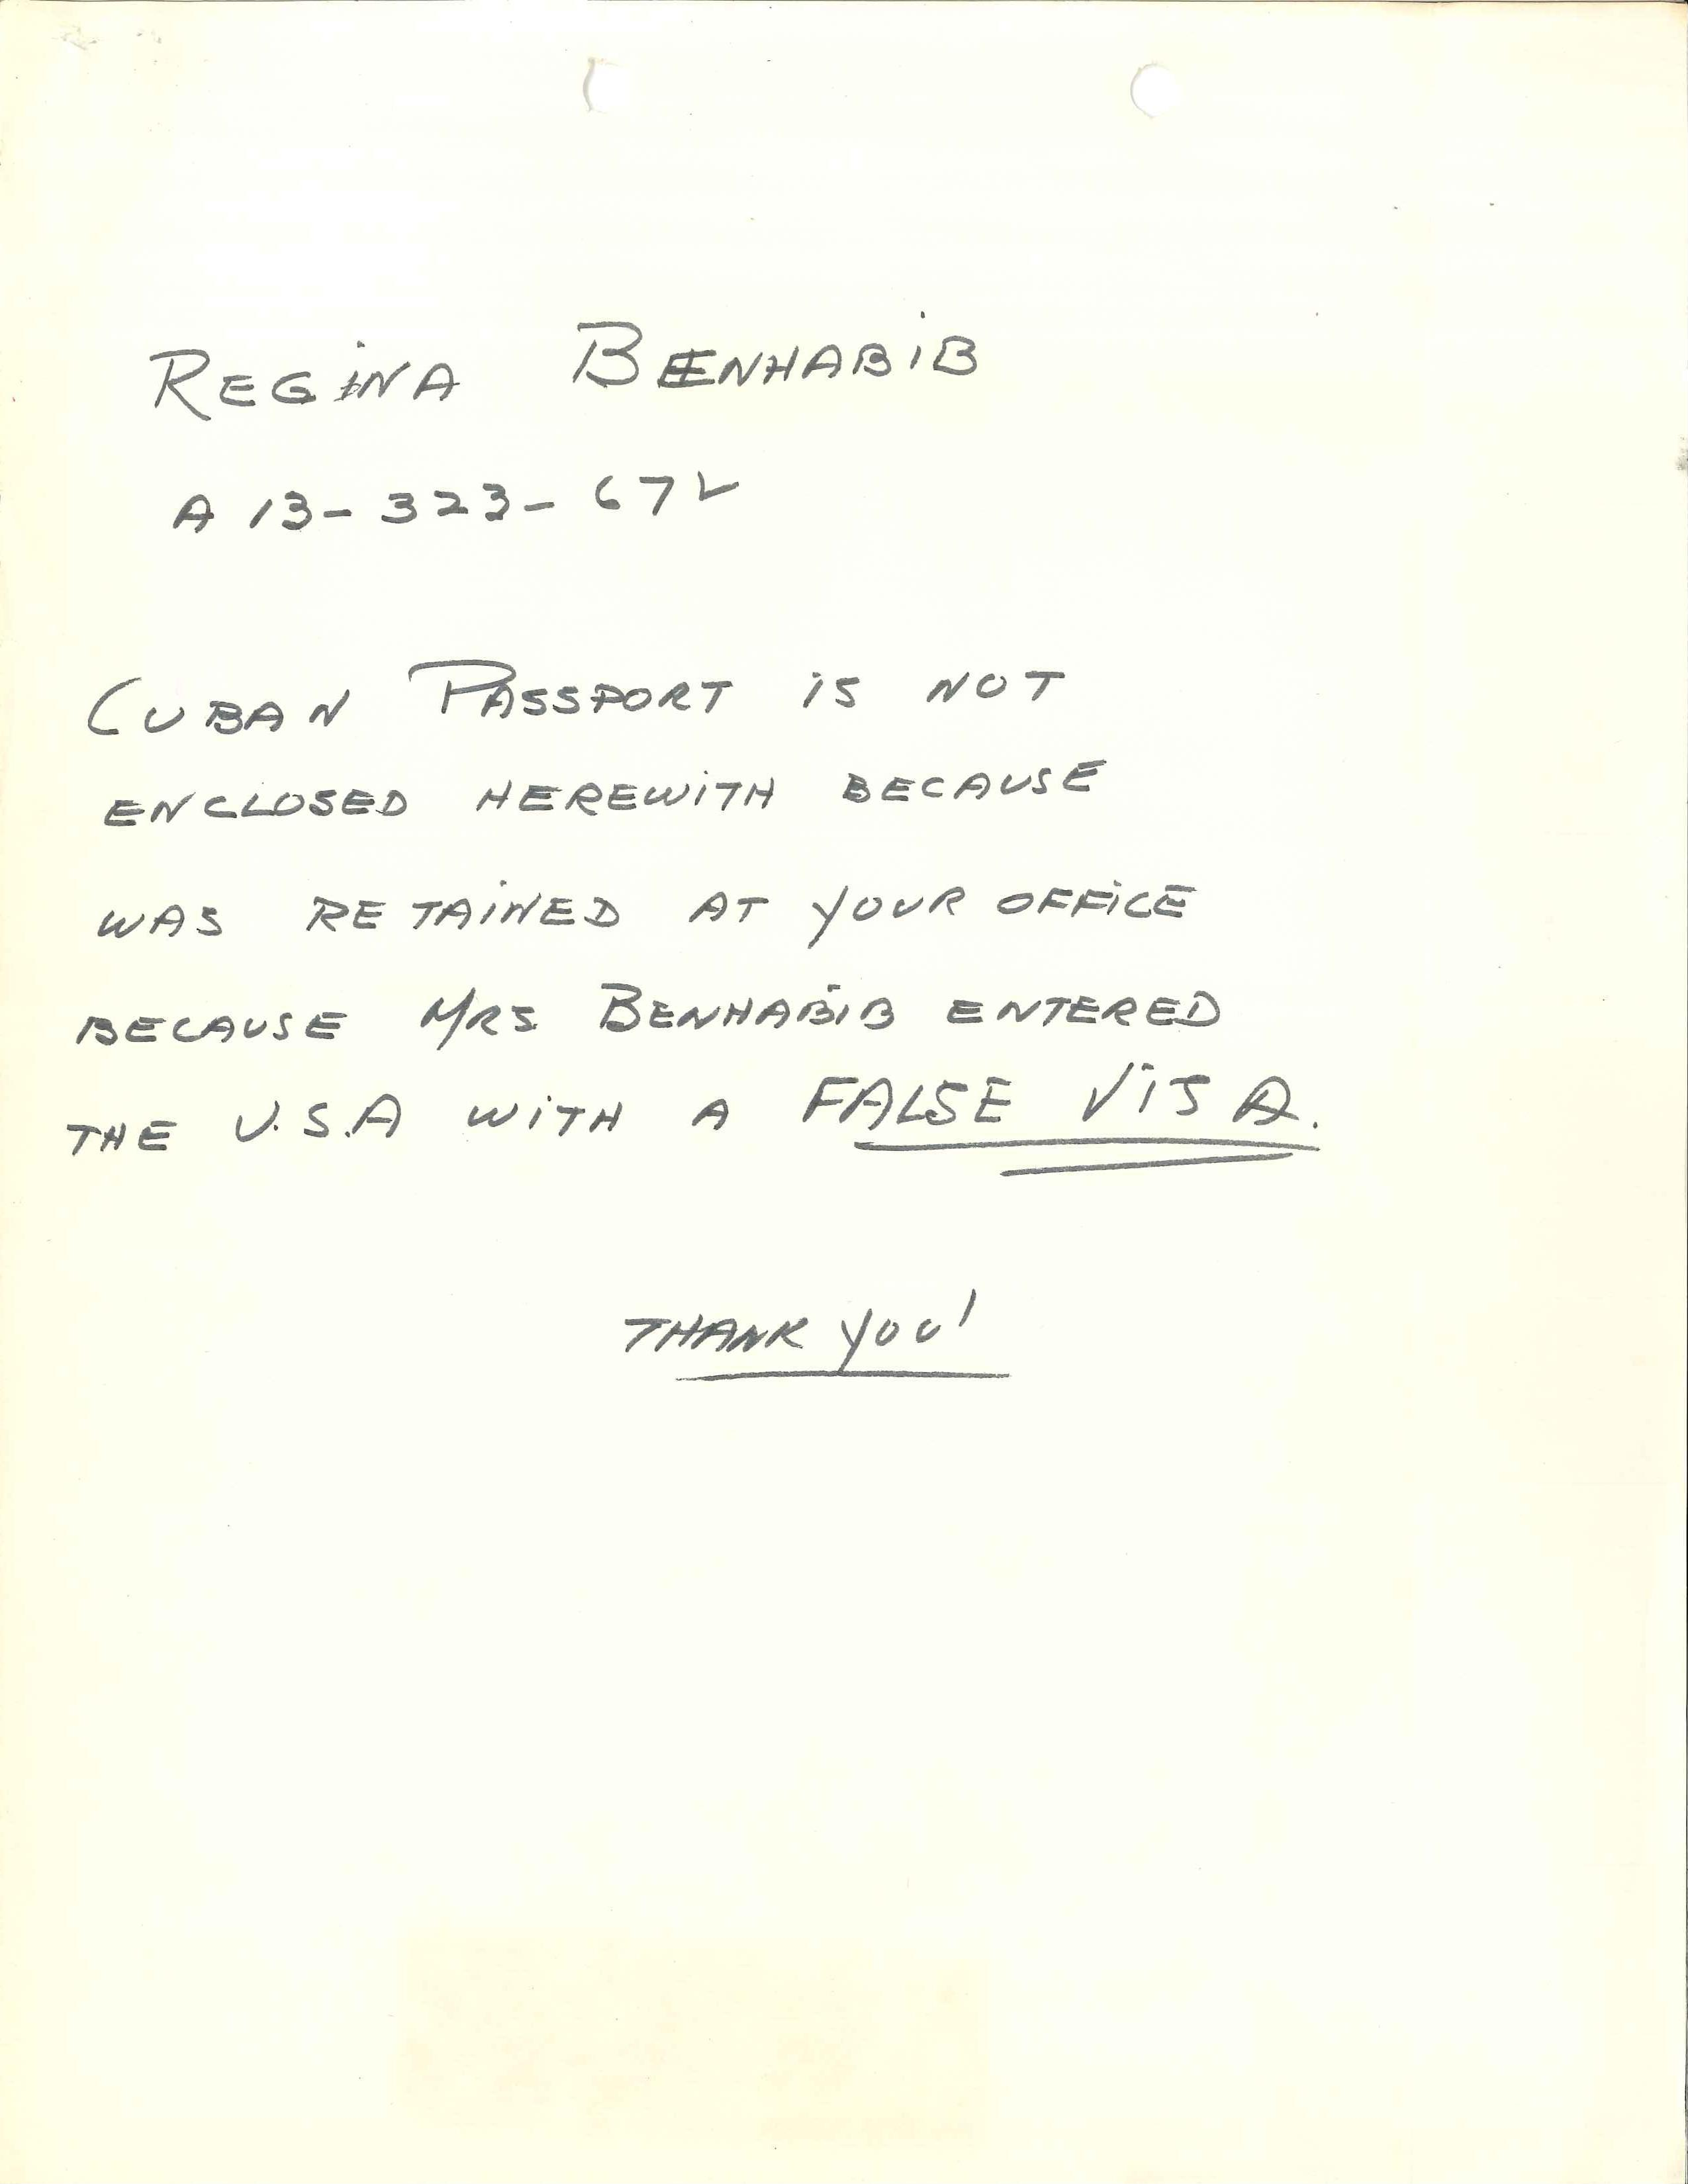 REGINA BENHABIB
A 13-323-672
CUBAN PASSPORT IS NOT
ENCLOSED HEREWITH BECAUSE
WAS RETAINED AT YOUR OFFICE
BECAUSE MRS BENHABIB ENTERED
THE U.S.A WITH A FALSE VISA.
THANK YOU!